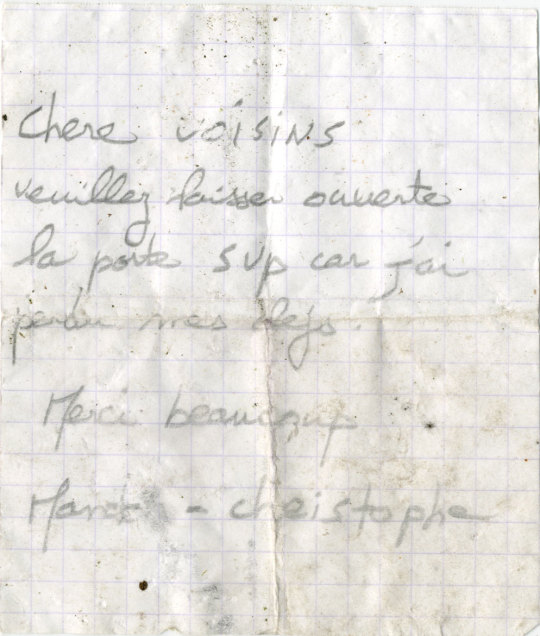 Chere voisins
veuillez laisser ouverte
la porte SVP car j'ai
perdu mes clefs.
Merci beaucoup
- Christophe